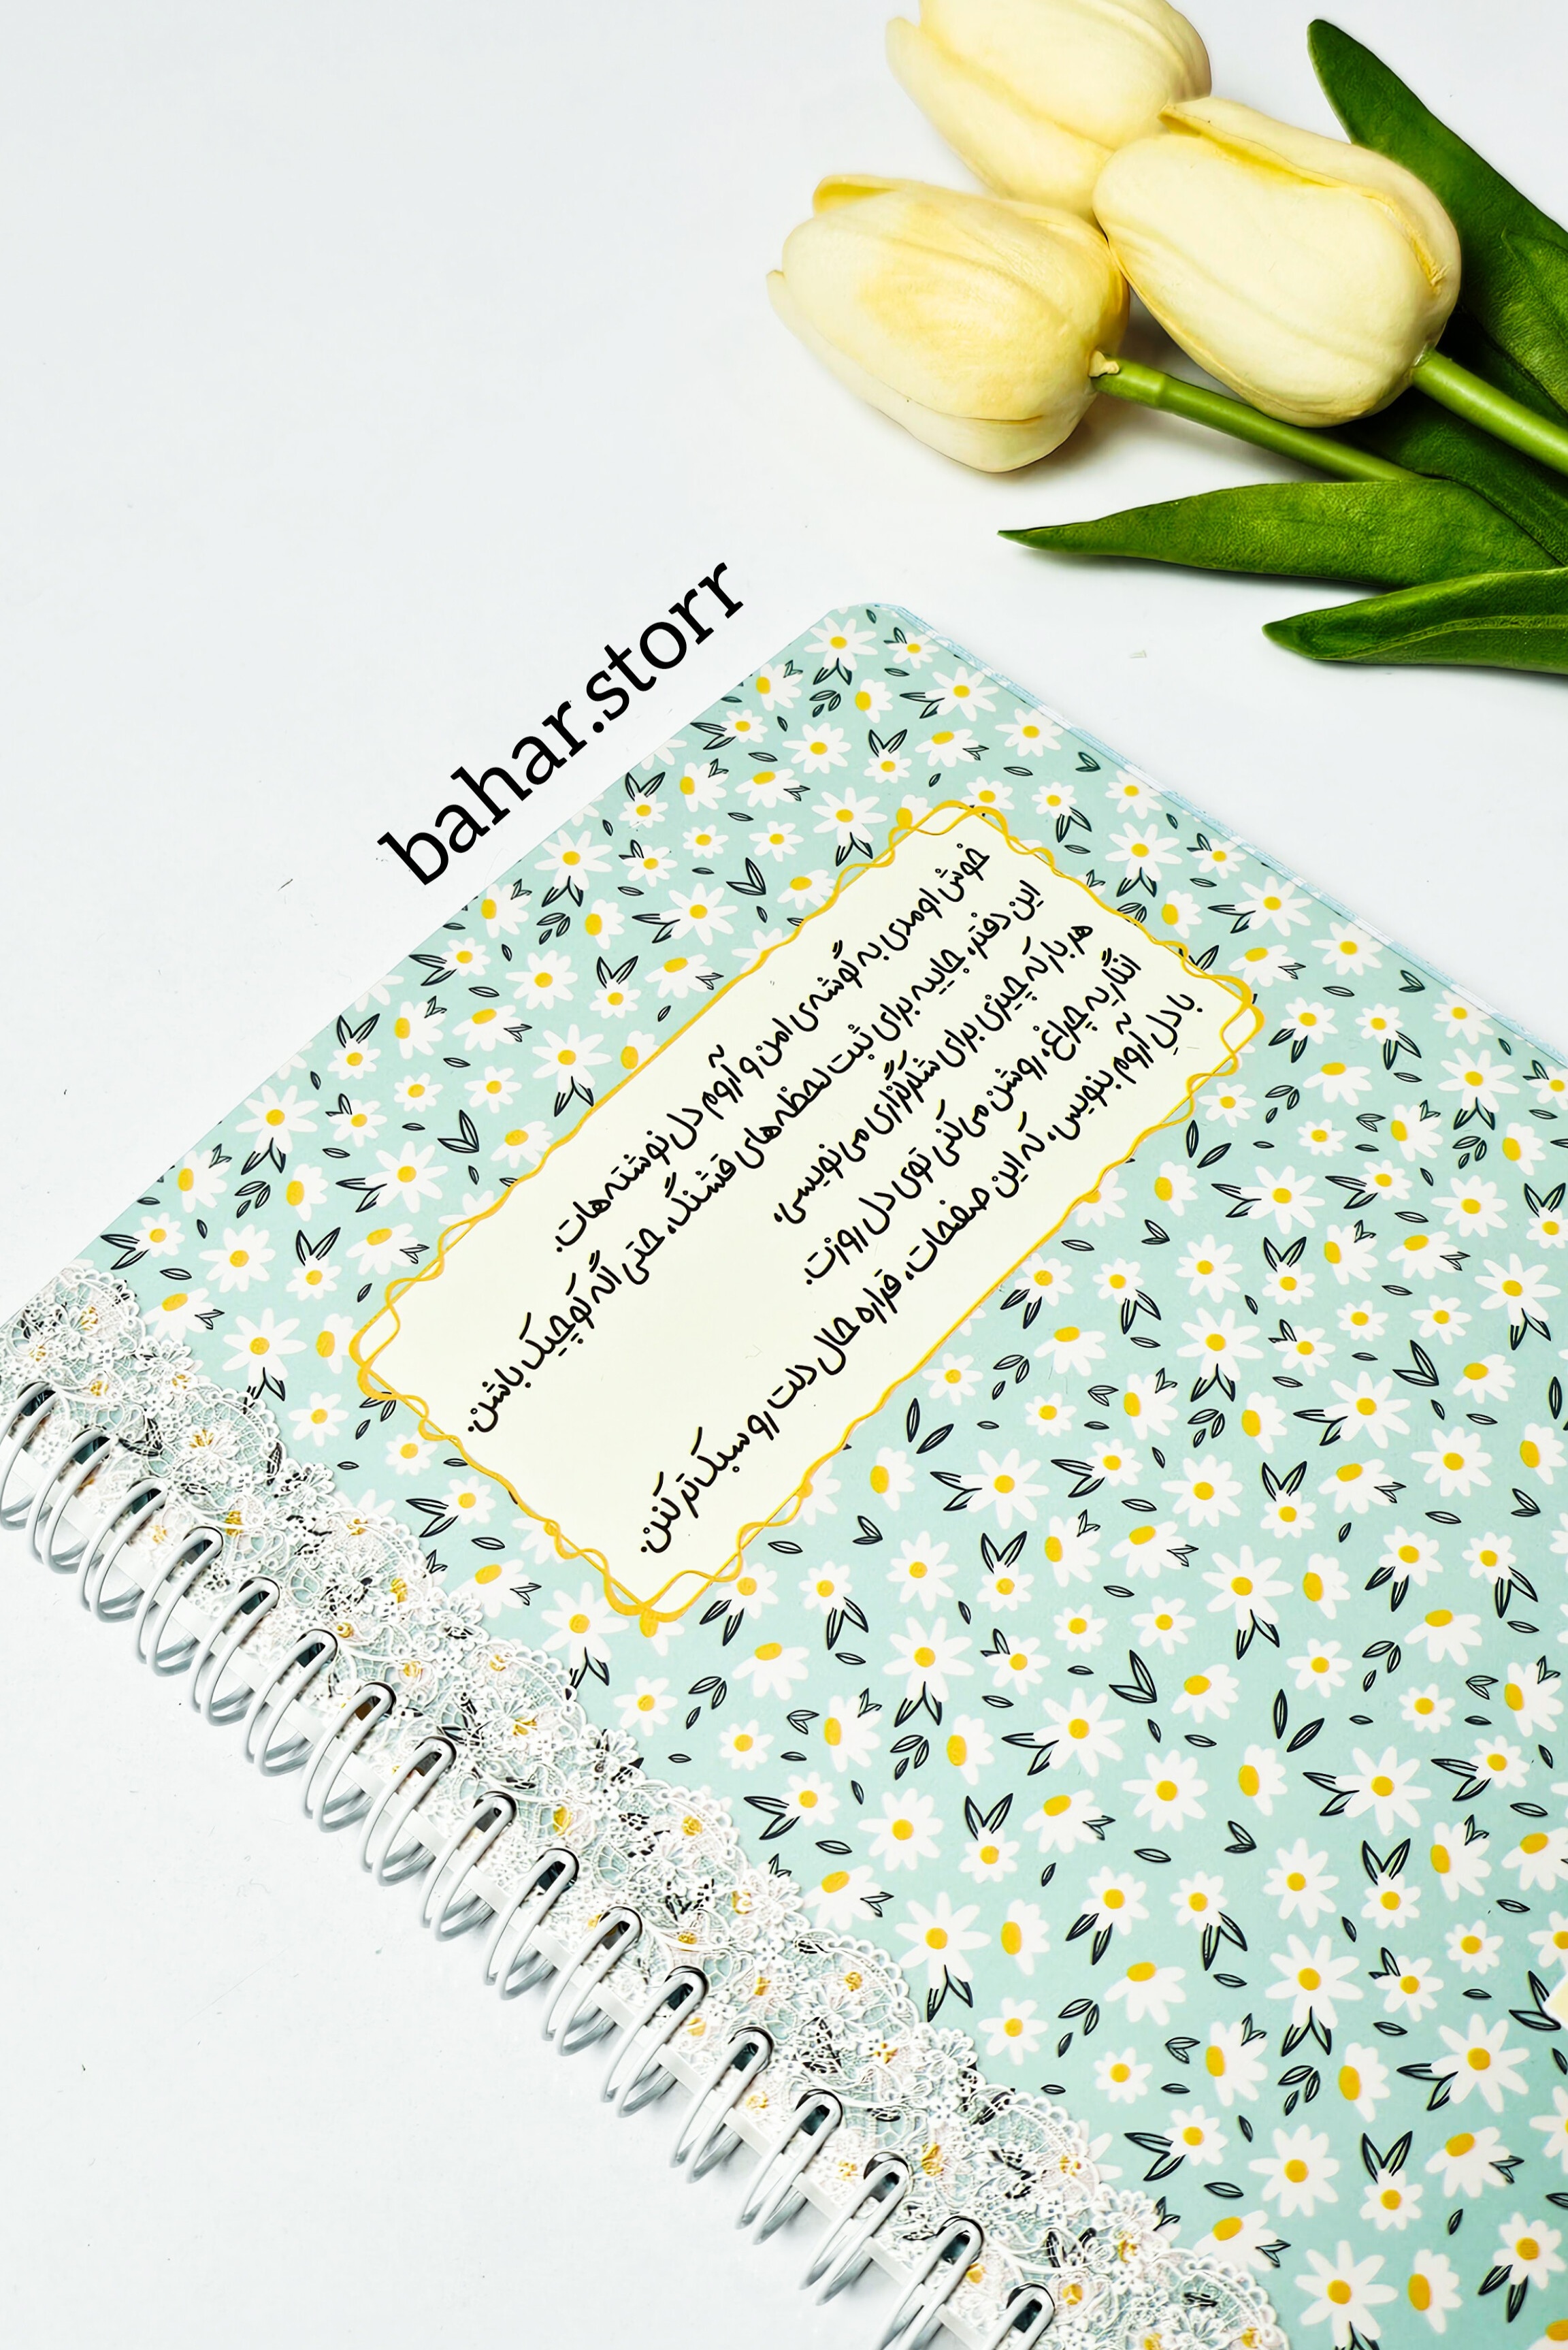 bahar.storr
خوش اومدی به گوشه‌ی امن و آروم دل‌نوشته‌هات.
این دفتر، جاییه برای ثبت لحظه‌های قشنگ، حتی اگه کوچیک باشن.
هر بار که چیزی برای شکرگزاری می‌نویسی،
انگار یه چراغ، روشن می‌کنی توی دل روزت.
با دلِ آروم بنویس، که این صفحات، قراره حال دلت رو سبک‌تر کنن.